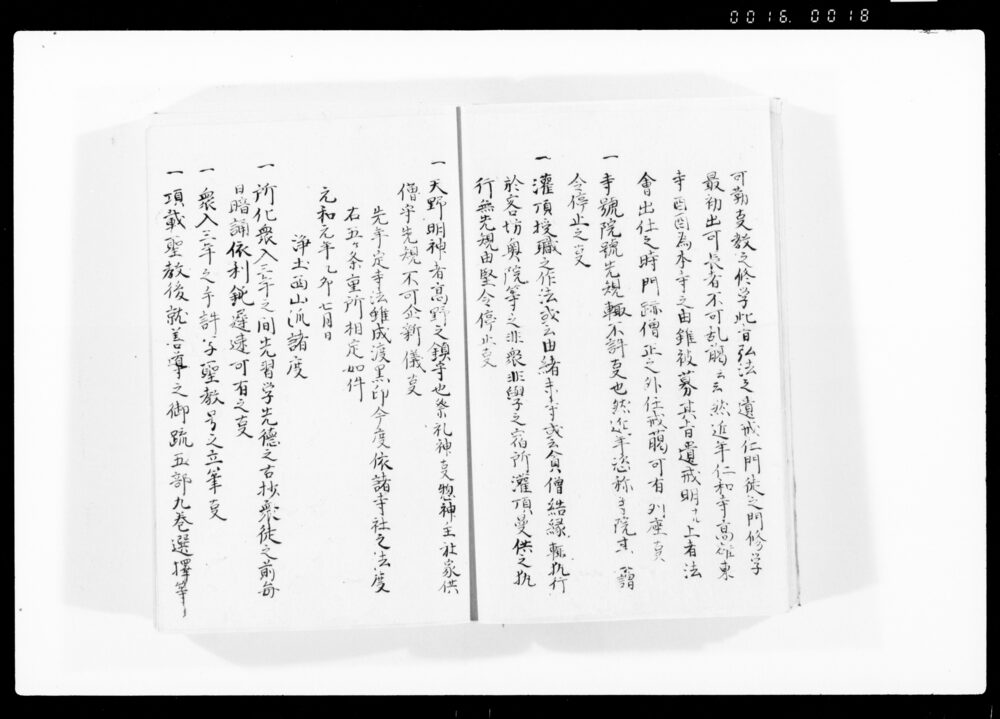 0016. 0018
可勤事教之修学此旨弘法之遺戒仁門徒之門修学
最初出可長者不可乱﨟云云然近年仁和寺高雄東
寺面面為本寺之由雖被募其旨遺戒明ナル上者法
會出仕之時門跡僧正之外任戒﨟可有列座事
一寺號院號先規輙不許事也然近年恣称寺院甚
令停止之事
一灌頂授職之作法或云由緒寺或云貧僧結縁輙執行
於客坊奥院等之非衆非學子之宿所灌頂曼供之執
行無先規由堅令停止事
一天野明神者高野之鎮守也祭礼神事惣神主社家供
僧守先規不可企新儀事
先年定寺法雖成渡黒印今度依諸寺社之法度
右五ケ条重所相定如件
元和元年乙卯七月日
浄土西山派諸度
一所化衆入三年之間先習学先徳之古抄衆徒之前毎
日暗誦依利鈍遅速可有之事
一衆入三年之年許与聖教号之立筆事
一頂戴聖教後就善導之御疏五部九巻選擇等